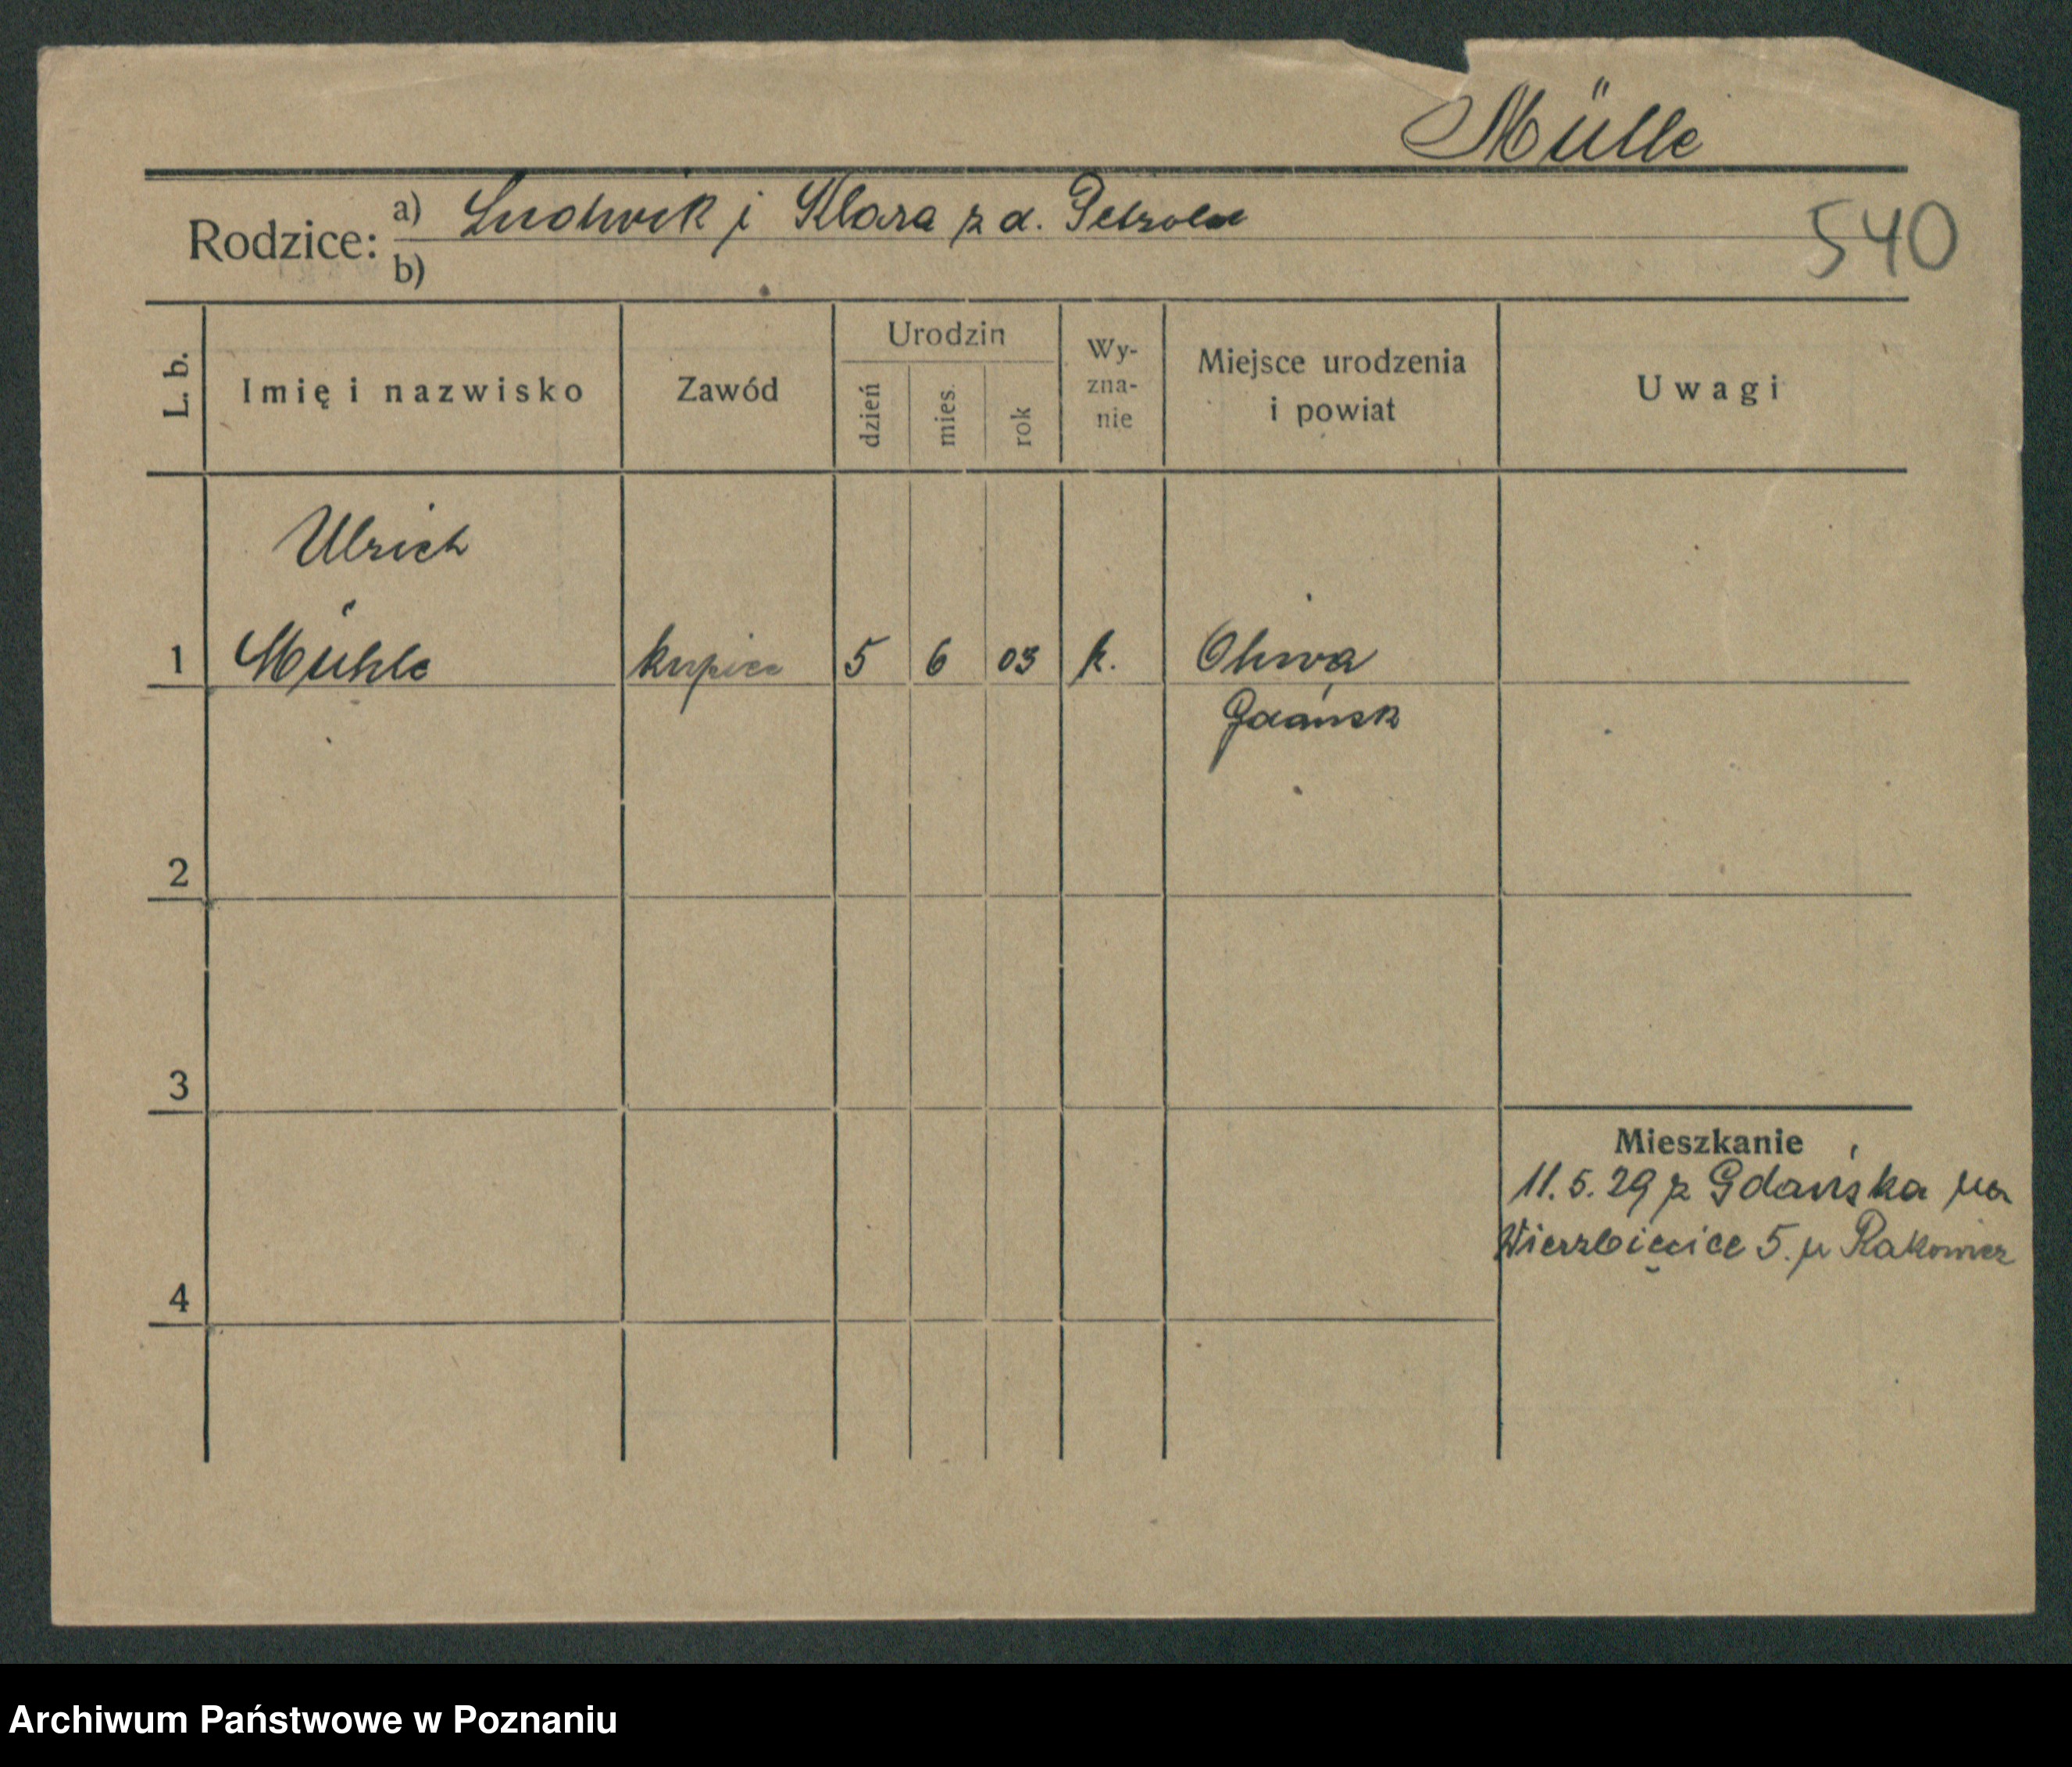 Mülle
Rodzice: a) Ludwik i Klara z d. Petzold
b)
540
L. b.
Imię i nazwisko
Zawód
Urodzin
dzień
mies.
rok
Wy-
zna-
nie
Miejsce urodzenia
i powiat
Uwagi
Ulrich
1 Mühle kupiec 5 6 03 k. Oliwa
Gdańsk
2
3
Mieszkanie
11.5.29 z Gdańska na
Wierzbięcice 5. u Rakowicz
4
Archiwum Państwowe w Poznaniu